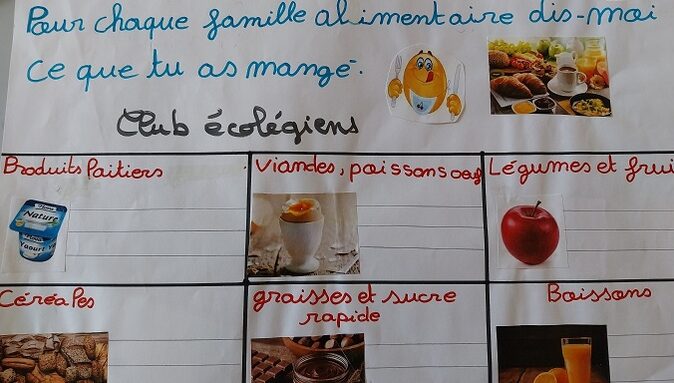 Pour chaque famille alimentaire dis-moi
ce que tu as mangé.
Club écolégiens
Produits laitiers
Viandes, poissons oeuf
Légumes et frui
Nature
Yaourt
Céréales
graisses et sucre
rapide
Boissons